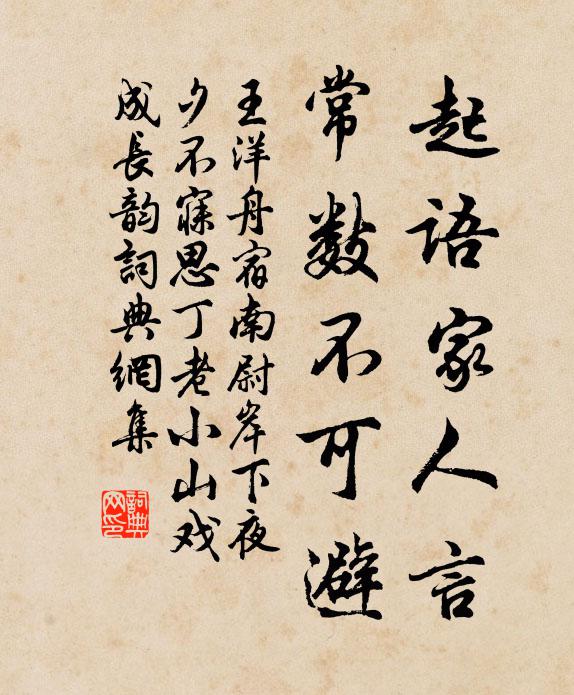 起语家人言
常数不可避
王洋舟宿南尉岸下夜
夕不寐思丁老小山戏
成長韵詞典網集
詞典
网印